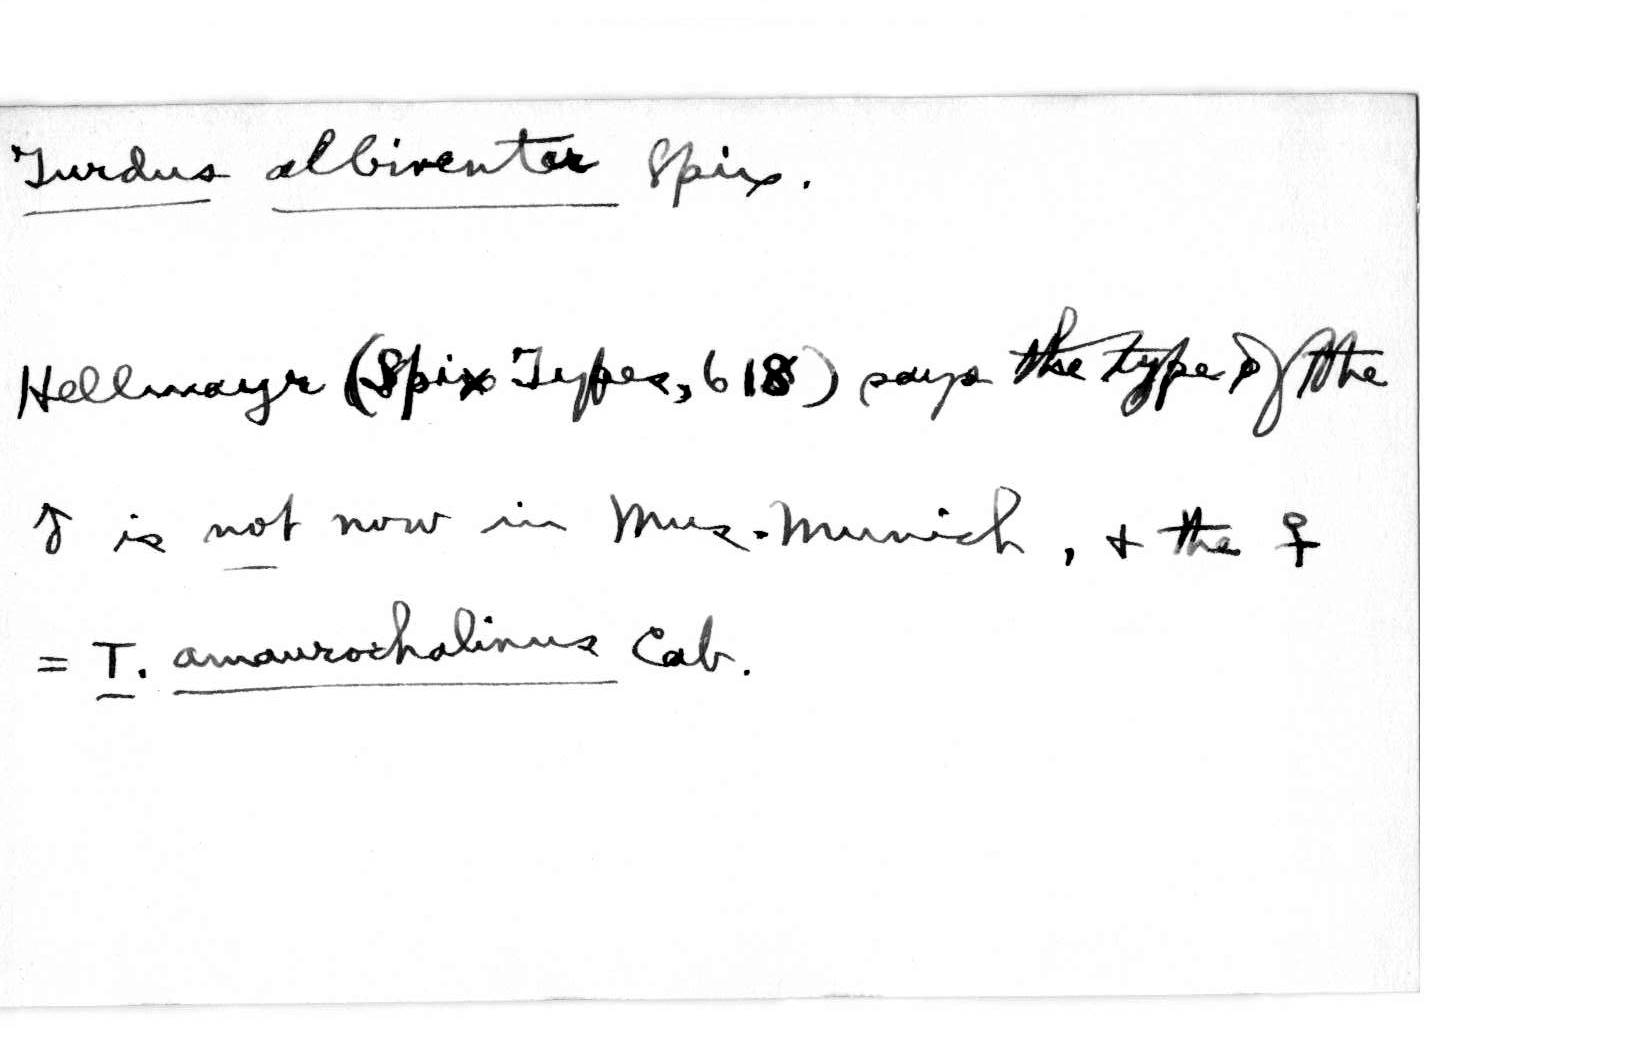 Turdus albiventer Spix.
Hellmayr (Spix Types, 618) says the type of the
♂ is not now in Mus. Munich, & the ♀
= T. amaurochalinus Cab.